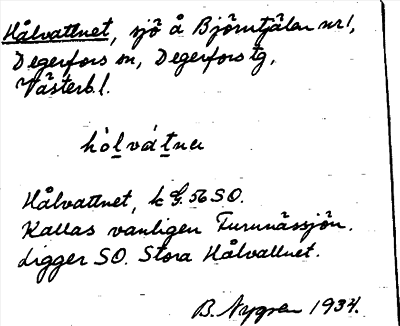 Hålvattnet, sjö å Björntjälen nr 1,
Degerfors sn, Degerfors tg,
Västerb. l.
hòl vát nɑ
Hålvattnet, k G. 56 SO.
Kallas vanligen Furunässjön.
Ligger SO. Stora Hålvattnet.
B. Nygren 1934.